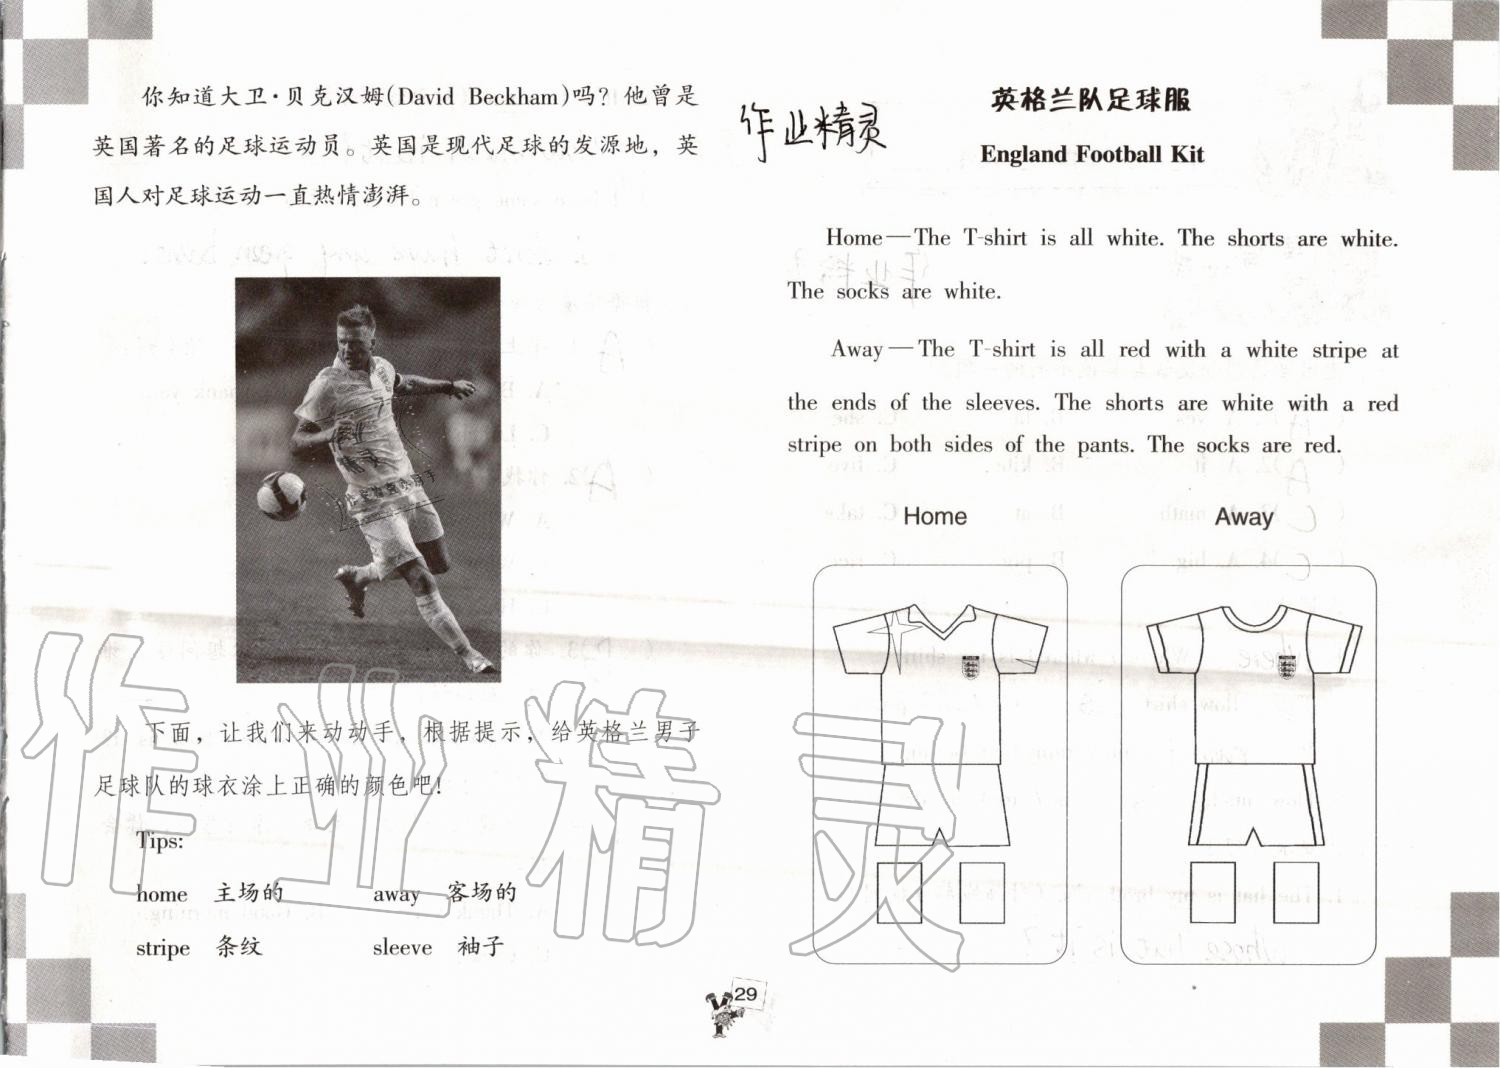 你知道大卫·贝克汉姆(David Beckham)吗？他曾是
英国著名的足球运动员。英国是现代足球的发源地，英
国人对足球运动一直热情澎湃。
下面，让我们来动动手，根据提示，给英格兰男子
足球队的球衣涂上正确的颜色吧!
Tips:
home 主场的 away 客场的
stripe 条纹 sleeve 袖子
作业精灵
29
作业精灵
英格兰队足球服
England Football Kit
Home—The T-shirt is all white. The shorts are white.
The socks are white.
Away—The T-shirt is all red with a white stripe at
the ends of the sleeves. The shorts are white with a red
stripe on both sides of the pants. The socks are red.
Home Away